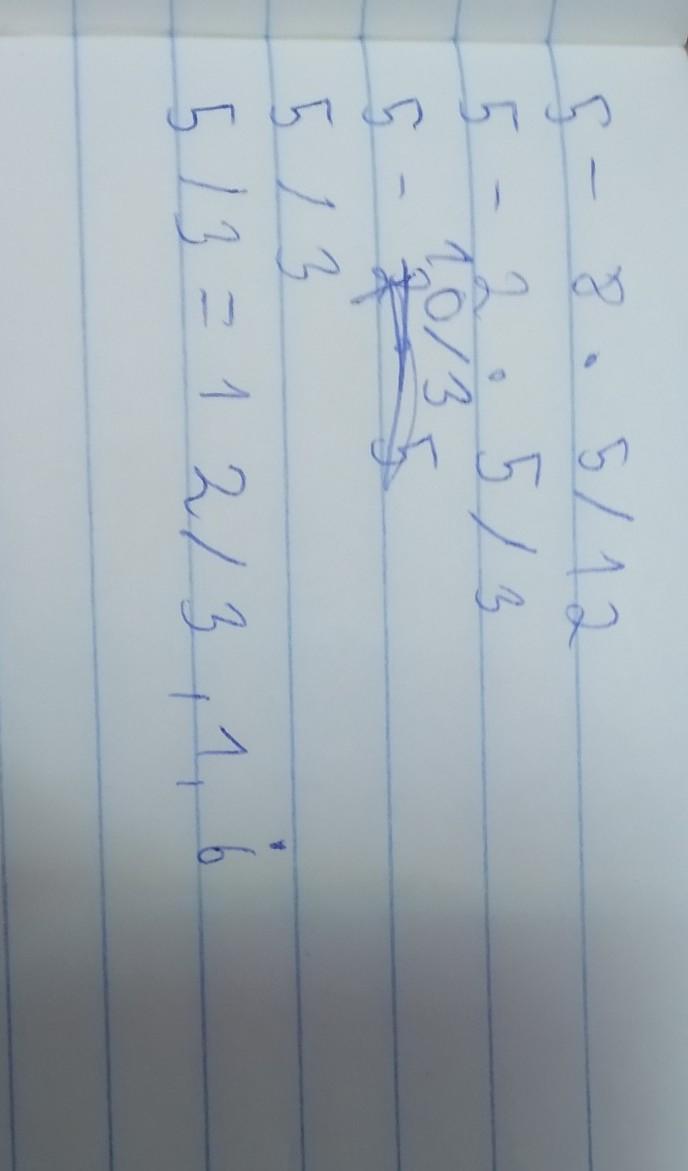 5 - 8 . 5/12
5 - 2 . 5/3
5 - 10/3
5/3
5/3 = 1 2/3, 1,6̇